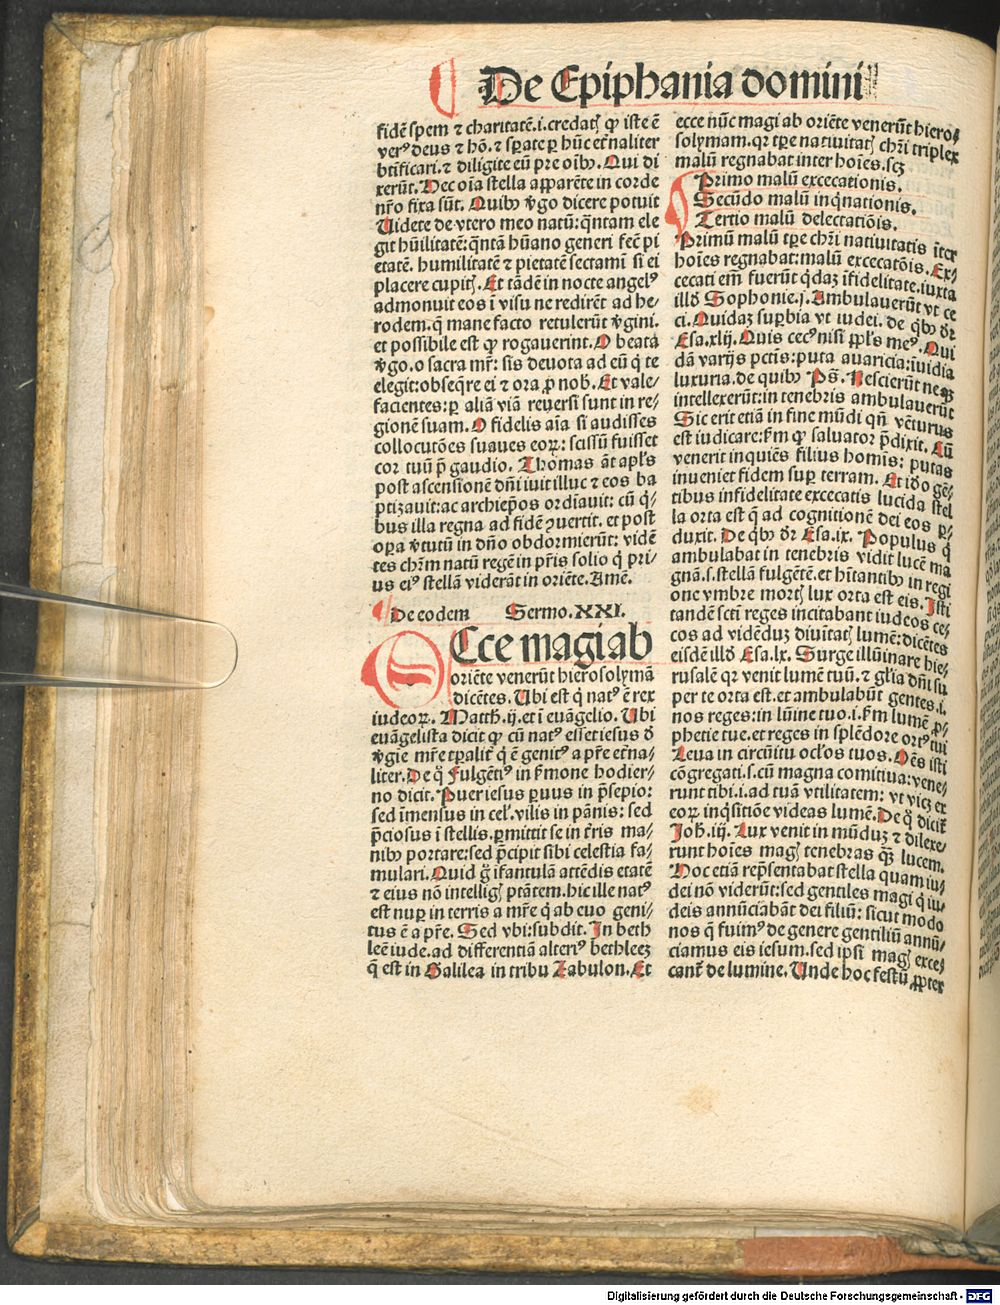 De Epiphania domini
fidē spem ⁊ charitatē.i.credatꝭ ꝙ iste ē
verꝰ deus ⁊ hō.⁊ sꝑate ꝑ hūc et̄naliter
btīficari.⁊ diligite eū pre oībꝰ. Qui di
xerūt. Hec oīa stella apparēte in corde
nr̄o fixa sūt. Quibꝰ v̄go dicere potuit
Uidete de vtero meo natū: q̄ntam ele
git hūilitatē: q̄ntā hūano generi fec̄ pi
etatē. humilitatē ⁊ pietatē sectamī si ei
placere cupitꝭ. Et tādē in nocte angelꝰ
admonuit eos ī visu ne redirēt ad he⸗
rodem. q̄ mane facto retulerūt v̄gini.
et possibile est ꝙ rogauerint. O beata
v̄go. o sacra mr̄: sis deuota ad eū q̄ te
elegit: obseq̄re ei ⁊ ora ꝓ nob̄. Et vale⸗
facientes: ꝑ aliā viā reuersi sunt in re⸗
gionē suam. O fidelis aīa si audisses
collocutōes suaues eoꝝ: scissū fuisset
cor tuū p̄ gaudio. Thomas āt apl̄s
post ascensionē dn̄i iuit illuc ⁊ eos ba
ptizauit: ac archiep̄os ordīauit: cū q̄⸗
bus illa regna ad fidē ꝯuertit. et post
oꝑa v̄tutū in dn̄o obdormierūt: vidē
tes chr̄m natū regē in pr̄is solio q̄ pri⸗
us eiꝰ stellā viderāt in oriēte. Amē.
De eodem Sermo. XXI.
ECce magi ab
oriēte venerūt hierosolymā
dicētes. Ubi est q̄ natꝰ ē rex
iudeoꝝ. Matth̄.ij. et ī euāgelio. Ubi
euāgelista dicit ꝙ cū natꝰ esset iesus d̄
v̄gie mr̄e tꝑalit̄ q̄ ē genitꝰ a pr̄e et̄na⸗
liter. De q̄ Fulgētiꝰ in s̄mone hodier⸗
no dicit. Puer iesus ꝑuus in p̄sepio:
sed īmensus in cel̄. vilis in pānis: sed
p̄ciosus ī stellis. ꝑmittit se in tr̄ris ma⸗
nibꝰ portare: sed p̄cipit sibi celestia fa⸗
mulari. Quid g̊ ifantulā attēdis etatē
⁊ eius nō intelligꝭ ptātem. hic ille natꝰ
est nuꝑ in terris a mr̄e q̄ ab euo geni⸗
tus ē a pr̄e. Sed vbi: subdit. In beth
leē iude. ad differentiā alteriꝰ bethleeꝫ
q̄ est in Galilea in tribu Zabulon. Et
ecce nūc magi ab oriēte venerūt hiero⸗
solymam. qr tꝑe natiuitatꝭ chr̄i triplex
malū regnabat inter hoīes. scꝫ
Primo malū excecationis.
Secūdo malū inq̄nationis.
Tertio malū delectatiōis.
Primū malū tꝑe chr̄i natiuitatis īter
hoīes regnabat: malū excecatōis. Ex⸗
cecati em̄ fuerūt q̄daꝫ īfidelitate. iuxta
illd̄ Sophonie.j. Ambulauerūt vt ce
ci. Quidaꝫ suꝑbia vt iudei. de q̄bꝰ dr̄
Esa.xlij. Quis cecꝰ nisi ppl̄s meꝰ. Qui
dā varijs pctīs: puta auaricia: īuidia
luxuria. de quibꝰ Ps̄. Nescierūt neqꝫ
intellexerūt: in tenebris ambulauerūt
Sic erit etiā in fine mūdi qn̄ vēturus
est iudicare: s̄m ꝙ saluator p̄dixit. Cū
venerit inquiēs filius homīs: putas
inueniet fidem suꝑ terram. Et iō gē⸗
tibus infidelitate excecatis lucida stel
la orta est q̄ ad cognitionē dei eos ꝑ⸗
duxit. De q̄bꝰ dr̄ Esa.ix. Populus q̄
ambulabat in tenebris vidit lucē ma
gnā.s. stellā fulgētē. et hītantibꝰ in regi
one vmbre mortꝭ lux orta est eis. Isti
tandē sctī reges incitabant iudeos ce⸗
cos ad vidēduꝫ diuītatꝭ lumē: dicētes
eisdē illd̄ Esa.lx. Surge illūinare hie⸗
rusalē qr venit lumē tuū. ⁊ gl̄ia dn̄i su
per te orta est. et ambulabūt gentes.i.
nos reges: in lūine tuo.i. s̄m lumē ꝓ⸗
phetie tue. et reges in splēdore ortꝰ tui
Leua in circūitu ocl̄os tuos. Oēs isti
cōgregati.s. cū magna comitiua: vene⸗
runt tibi.i. ad tuā vtilitatem: vt vicꝫ ex
eoꝝ inq̄sitiōe videas lumē. De q̄ dicit̄
Joh̄.iij. Lux venit in mūduꝫ ⁊ dilexe⸗
runt hoīes magꝭ tenebras q̄ꝫ lucem.
Hoc etiā rep̄sentabat stella quam iu⸗
dei nō viderūt: sed gentiles magi q̄ iu⸗
deis annūciabāt dei filiū: sicut modo
nos q̄ fuimꝰ de genere gentiliū annū⸗
ciamus eis iesum. sed ipsi magꝭ exce⸗
cant̄ de lumine. Unde hoc festū ꝓpter
Digitalisierung gefördert durch die Deutsche Forschungsgemeinschaft - DFG